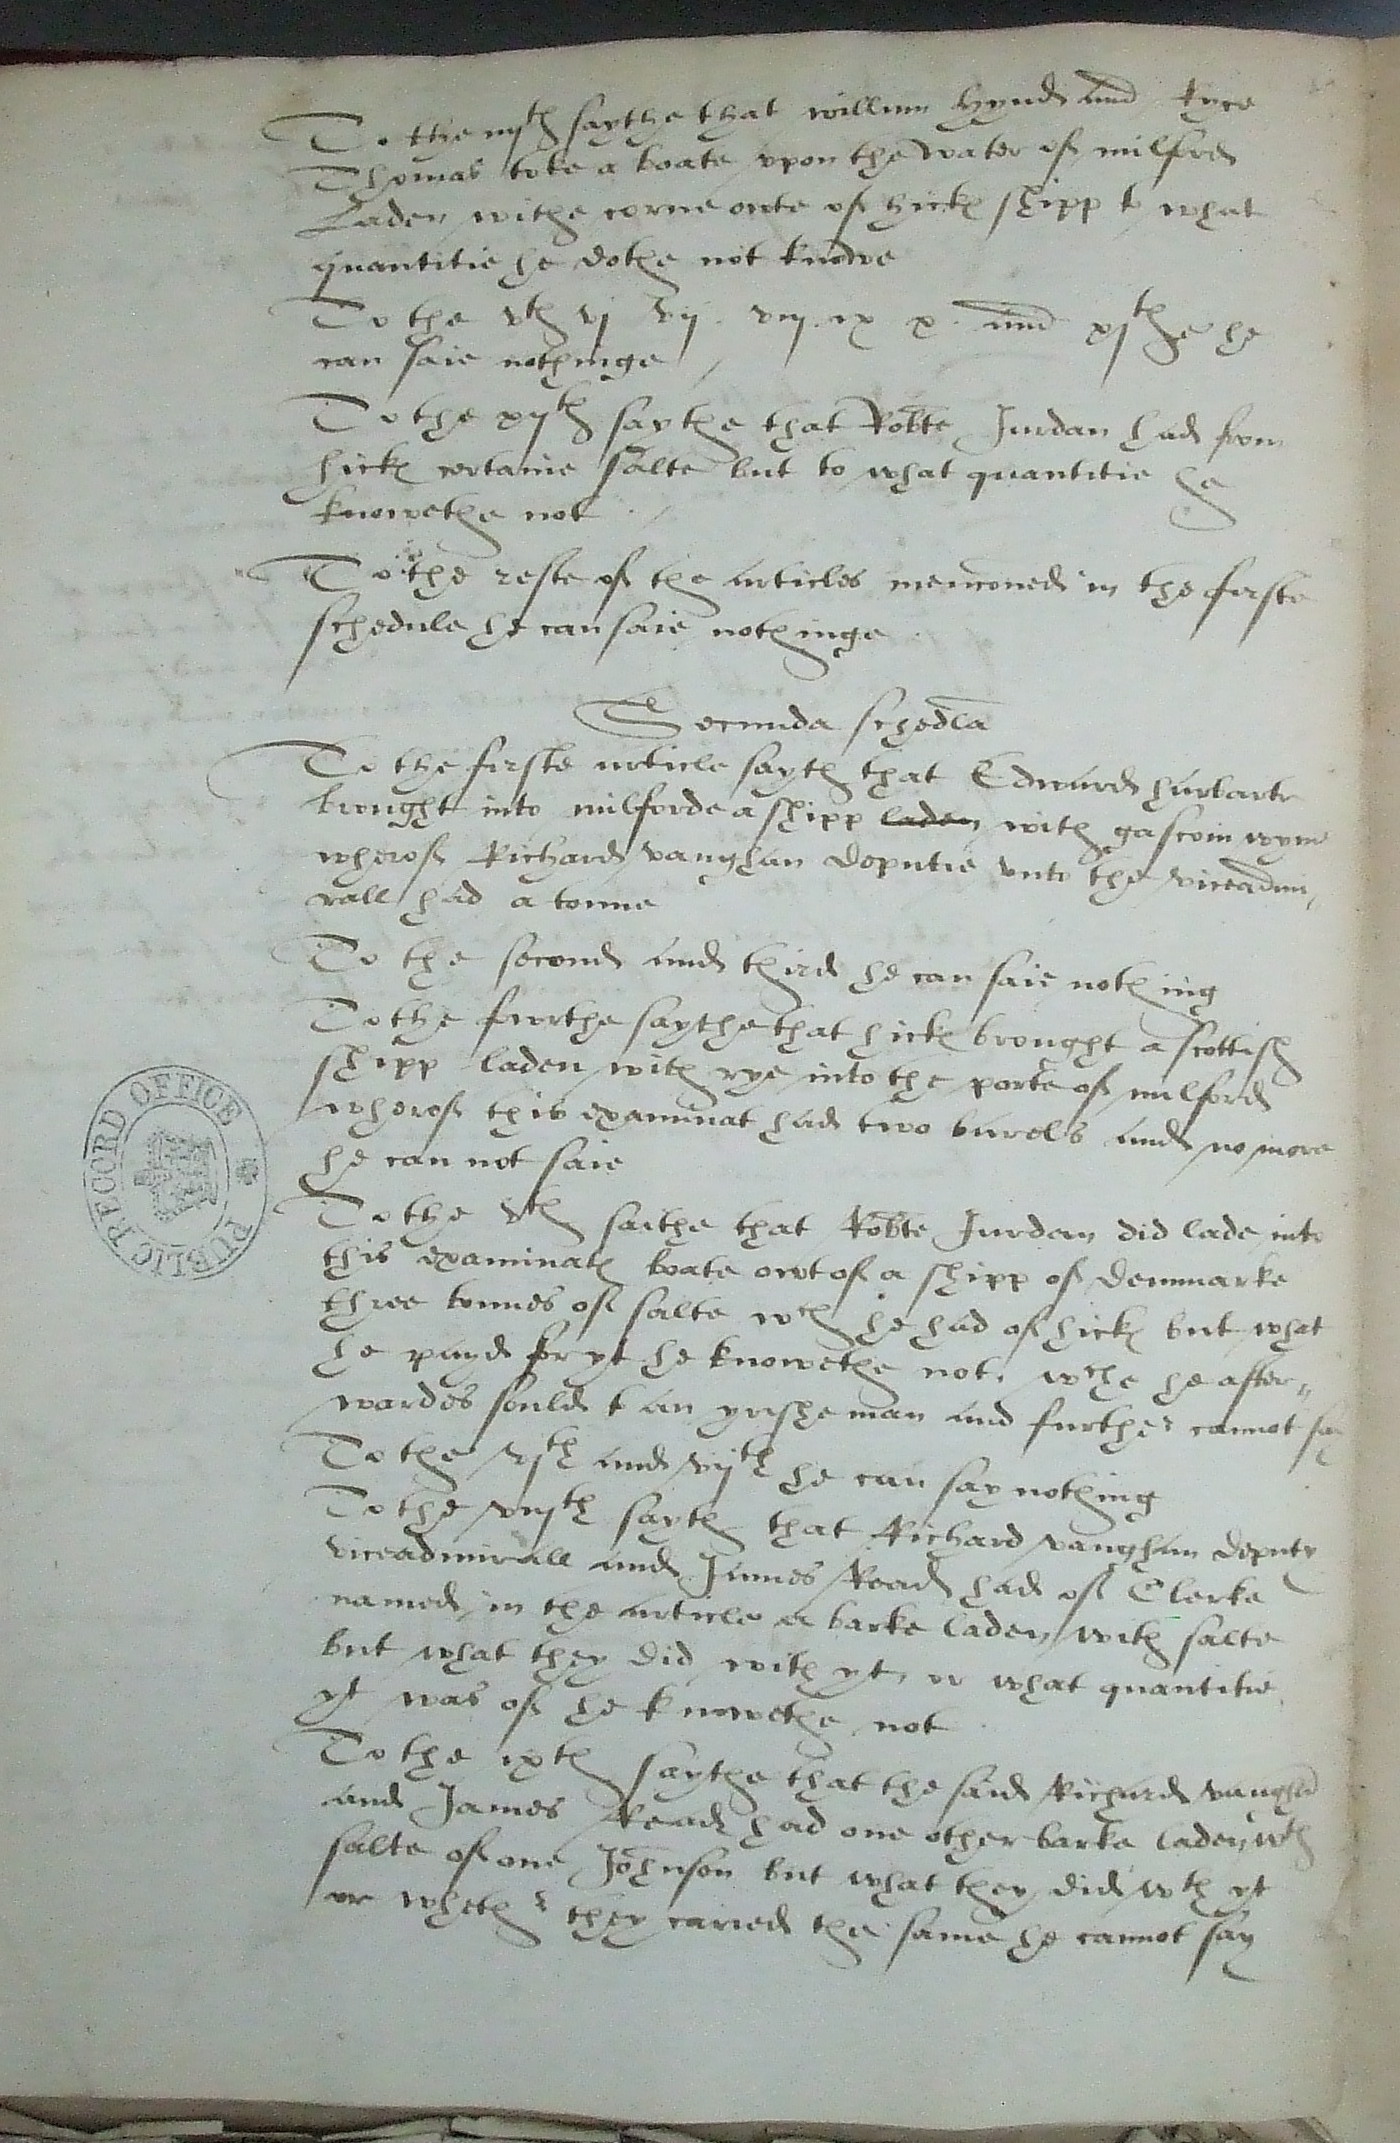 To the iiijth saythe that willum hynd and Ryce
Thomas toke a boate upon the water of milford
Laden withe corne owte of hick shipp to what
quantitie he dothe not knowe
To the vth vj vij. viij. ix x. and xjth he
can saie nothinge
To the xijth saythe that Robte Jurdan had from
hick certaine salte but to what quantitie he
knowethe not
To the reste of the articles mencioned in the firste
schedule he can saie nothinge
Secunda schedla
To the firste article sayth that Edward hurbarte
brought into milforde a shipp laden with gascoin wyne
wherof Richard vaughan deputie unto the viceadmi
rall had a tonne
To the second and third he can saie nothing
To the fourthe saythe that hick brought a scottish
shipp laden with rye into the porte of milford
wherof this examinat had two barels and no more
he can not saie
To the vth saithe that Robte Jurdan did lade into
this examinats boate owt of a shipp of denmarke
three tonnes of salte wch he had of hick but what
he payd for yt he knowethe not. wche he after
wardes sould to an yrishe man and further cannot say
To the vjth and vijth he can say nothing
To the viijth sayth that Richard vaughan deputy
viceadmirall and James Read had of Clerke
named in the article a barke laden with salte
but what they did with yt or what quantitie
yt was of he knowethe not
To the ixth saythe that the said Richard vaughan
and James Read had one other barke laden wth
salte of one Johnson but what they did wth yt
or whether they caried the same he cannot say
PUBLIC RECORD OFFICE